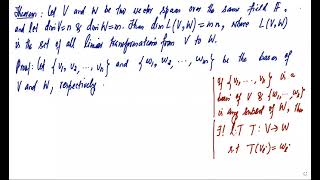 Theorem: Let V and W be two vector spaces over the same field F.
and let dim V = n & dim W = m. Then dim L(V, W) = mn, where L(V, W)
is the set of all linear transformations from V to W.
Proof: Let {v₁, v₂, ..., vₙ} and {w₁, w₂, ..., wₘ} be the bases of
V and W, respectively.
If {v₁, v₂, ..., vₙ} is a
basis of V & {w₁, ..., wₙ}
is any subset of W, then
∃! L.T T: V → W
s.t T(vᵢ) = wᵢ